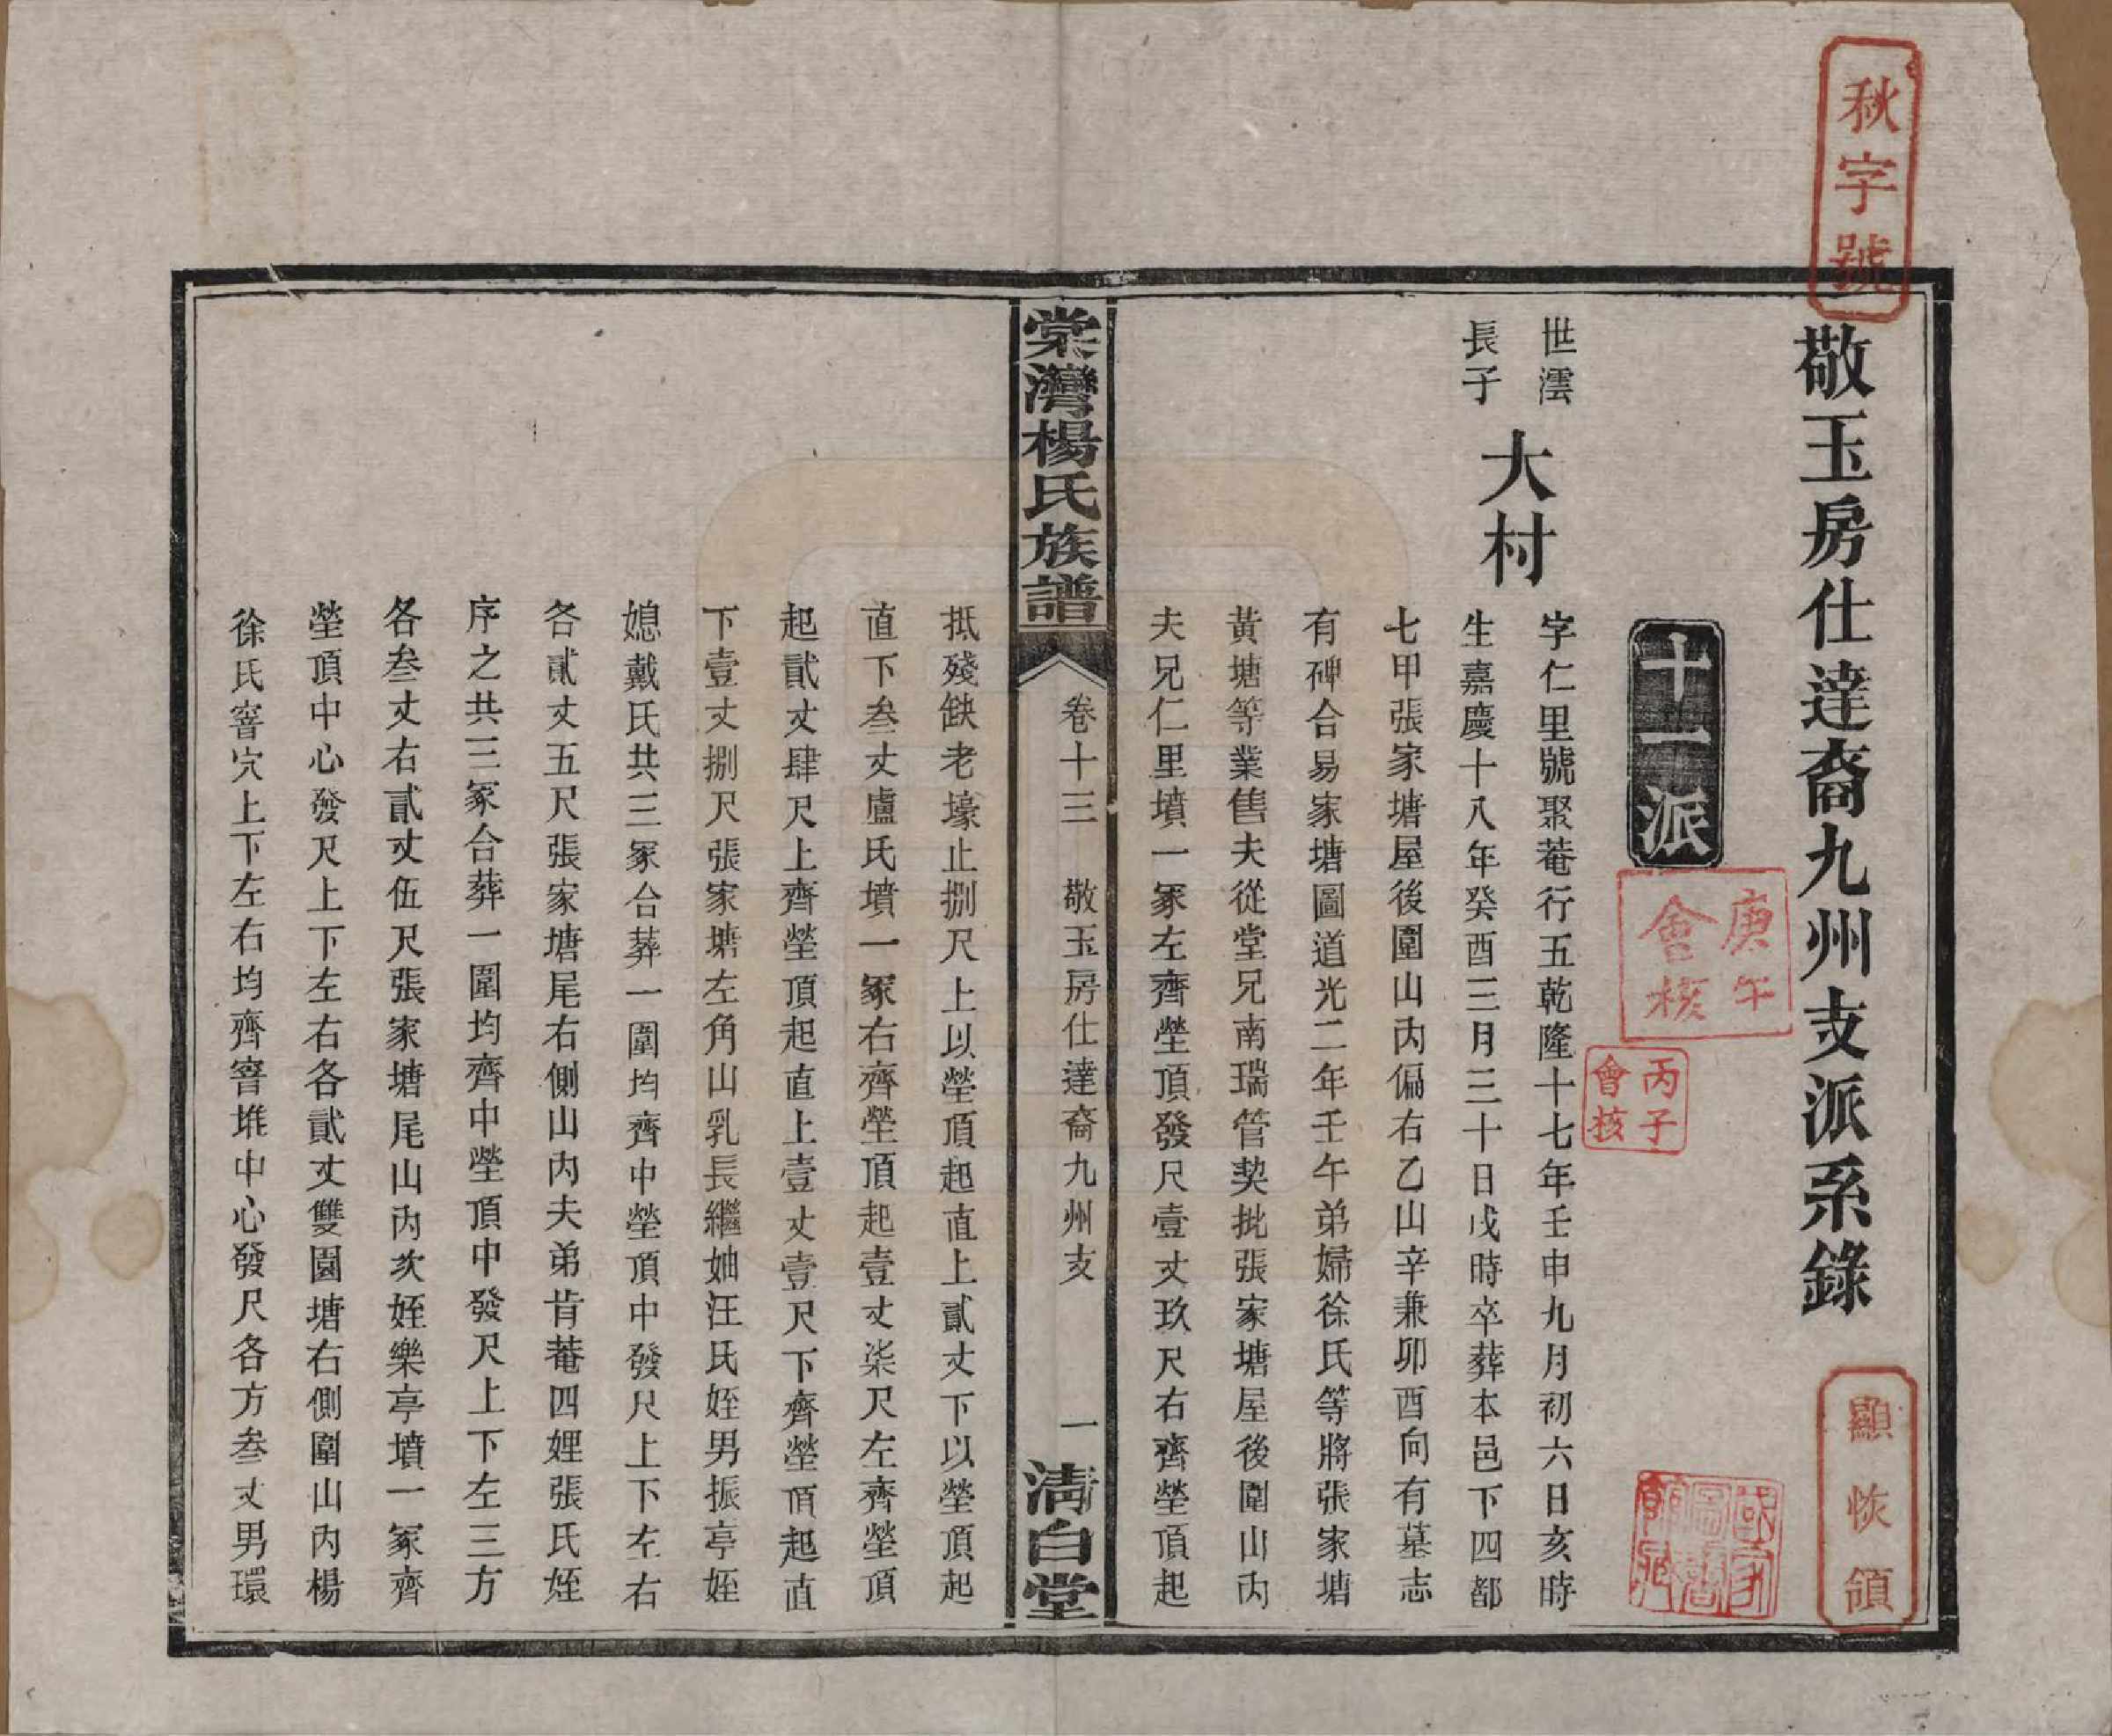 秋字號
敬玉房仕達裔九州支派系錄
顯恢領
十一派
庚午
會核
丙子
會核
國家
圖書
館藏
世澐
長子
大村
字仁里號聚菴行五乾隆十七年壬申九月初六日亥時
生嘉慶十八年癸酉三月三十日戌時卒葬本邑下四都
七甲張家塘屋後圍山內偏右乙山辛兼卯酉向有墓志
有碑合易家塘圖道光二年壬午弟婦徐氏等將張家塘
黃塘等業售夫從堂兄南瑞管契批張家塘屋後圍山內
夫兄仁里墳一冢左齊塋頂發尺壹丈玖尺右齊塋頂起
棠灣楊氏族譜
卷十三
敬玉房仕達裔九州支
一
清白堂
抵殘缺老壕止捌尺上以塋頂起直上貳丈下以塋頂起
直下叁丈盧氏墳一冢右齊塋頂起壹丈柒尺左齊塋頂
起貳丈肆尺上齊塋頂起直上壹丈壹尺下齊塋頂起直
下壹丈捌尺張家塘左角山乳長繼妯汪氏姪男振亭姪
媳戴氏共三冢合葬一圍均齊中塋頂中發尺上下左右
各貳丈五尺張家塘尾右側山內夫弟肯菴四娌張氏姪
序之共三冢合葬一圍均齊中塋頂中發尺上下左三方
各叁丈右貳丈伍尺張家塘尾山內次姪樂亭墳一冢齊
塋頂中心發尺上下左右各貳丈雙園塘右側圍山內楊
徐氏窨穴上下左右均齊窨堆中心發尺各方叁丈男環